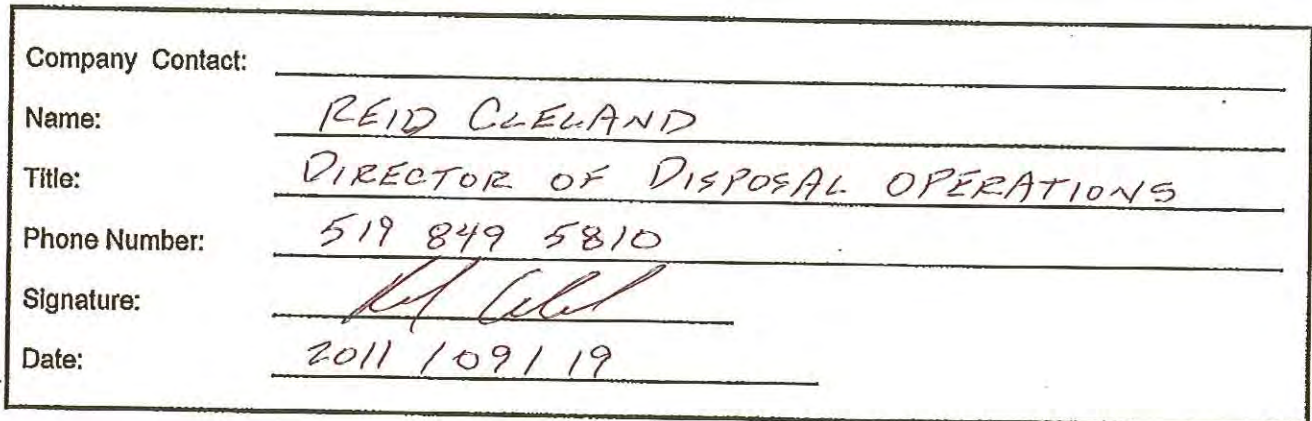 Company Contact:
Name: REID CLELAND
Title: DIRECTOR OF DISPOSAL OPERATIONS
Phone Number: 519 849 5810
Signature:
Date: 2011 / 09 / 19